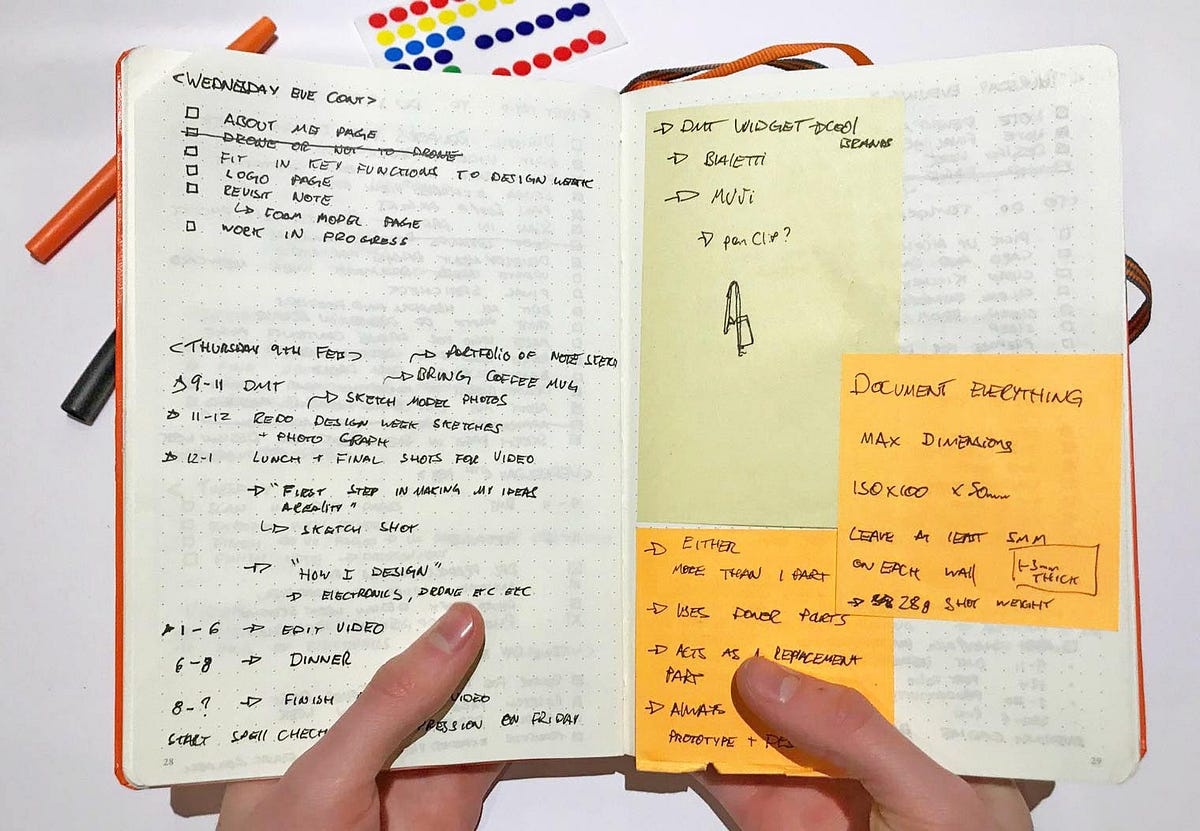 <WEDNESDAY EVE CONT>
ABOUT ME PAGE
DRONE OR NOT TO DRONE
FIT IN KEY FUNCTIONS TO DESIGN WEEK
LOGO PAGE
REVISIT NOTE
FOAM MODEL PAGE
WORK IN PROGRESS
<THURSDAY 9TH FEB>
PORTFOLIO OF NOTE
BRING COFFEE MUG
9-11 DMT
SKETCH MODEL PHOTOS
11-12 REDO DESIGN WEEK SKETCHES
+ PHOTO GRAPH
12-1 LUNCH + FINAL SHOTS FOR VIDEO
"FIRST STEP IN MAKING MY IDEAS
A REALITY"
SKETCH SHOT
"HOW I DESIGN"
ELECTRONICS, DRONE ETC ETC
1-6 EDIT VIDEO
6-8 DINNER
8-? FINISH VIDEO
START SPELL CHECK ON FRIDAY
28
DMT WIDGET
BRANDS
BIALETTI
MUJI
pen Clip?
DOCUMENT EVERYTHING
MAX DIMENSIONS
150x100 x50mm
LEAVE AT LEAST 5MM
ON EACH WALL
1-3mm
THICK
28g SHOT WEIGHT
EITHER
MORE THAN 1 PART
USES DONOR PARTS
ACTS AS A REPLACEMENT
PART
ALWAYS
PROTOTYPE +
29